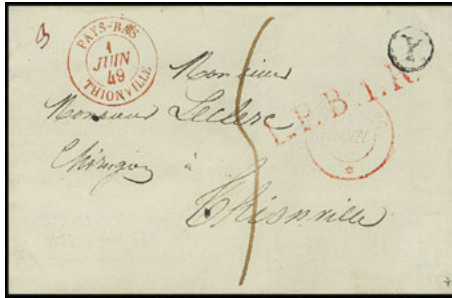 PAYS-BAS
1
JUIN
49
THIONVILLE
Y
L.P.B.1.R.
Monsieur
Monsieur Leclerc
à
Thionville